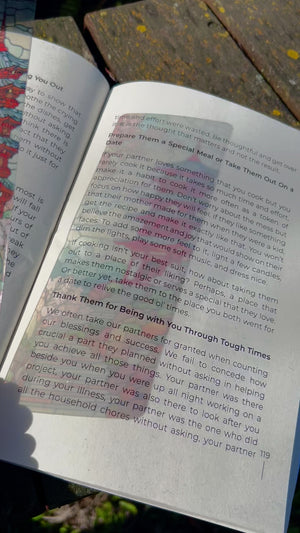 ng You Out
ay to show that
othe the crying
the dishes. Get
ithout asking
ink there is
ct that they
m without
it just for
most is
will fail
f your
urs of
t of
eak
time and effort were wasted. Be thoughtful and get over
it is the thought that matters and not the result.
Prepare Them a Special Meal or Take Them Out on a
Date
If your partner loves something that you cook but you
rarely cook it because it takes so much time and effort,
make it a habit to cook it more often as a token of
appreciation for them. Don't worry about the time but
focus on how happy they will be. If they like something
that their mother made for them when they were a child,
get the recipe and make it exactly like that. You won't
believe the amazement and joy that would show on their
faces. To add some more feel to it, light a few candles,
dim the lights, play some soft music, and dress nice.
If cooking isn't your best suit, how about taking them
out to a place of their liking? Perhaps, a place that
makes them nostalgic or serves a special that they love.
Or better yet, take them to the place you both went for
a date to relive the good old times.
Thank Them for Being with You Through Tough Times
We often take our partners for granted when counting
our blessings and success. We fail to concede how
crucial a part they planned without asking in helping
you achieve all those things. Your partner was there
beside you when you were up all night working on a
project, your partner was also there to look after you
during your illness, your partner was the one who did
all the household chores without asking, your partner
119